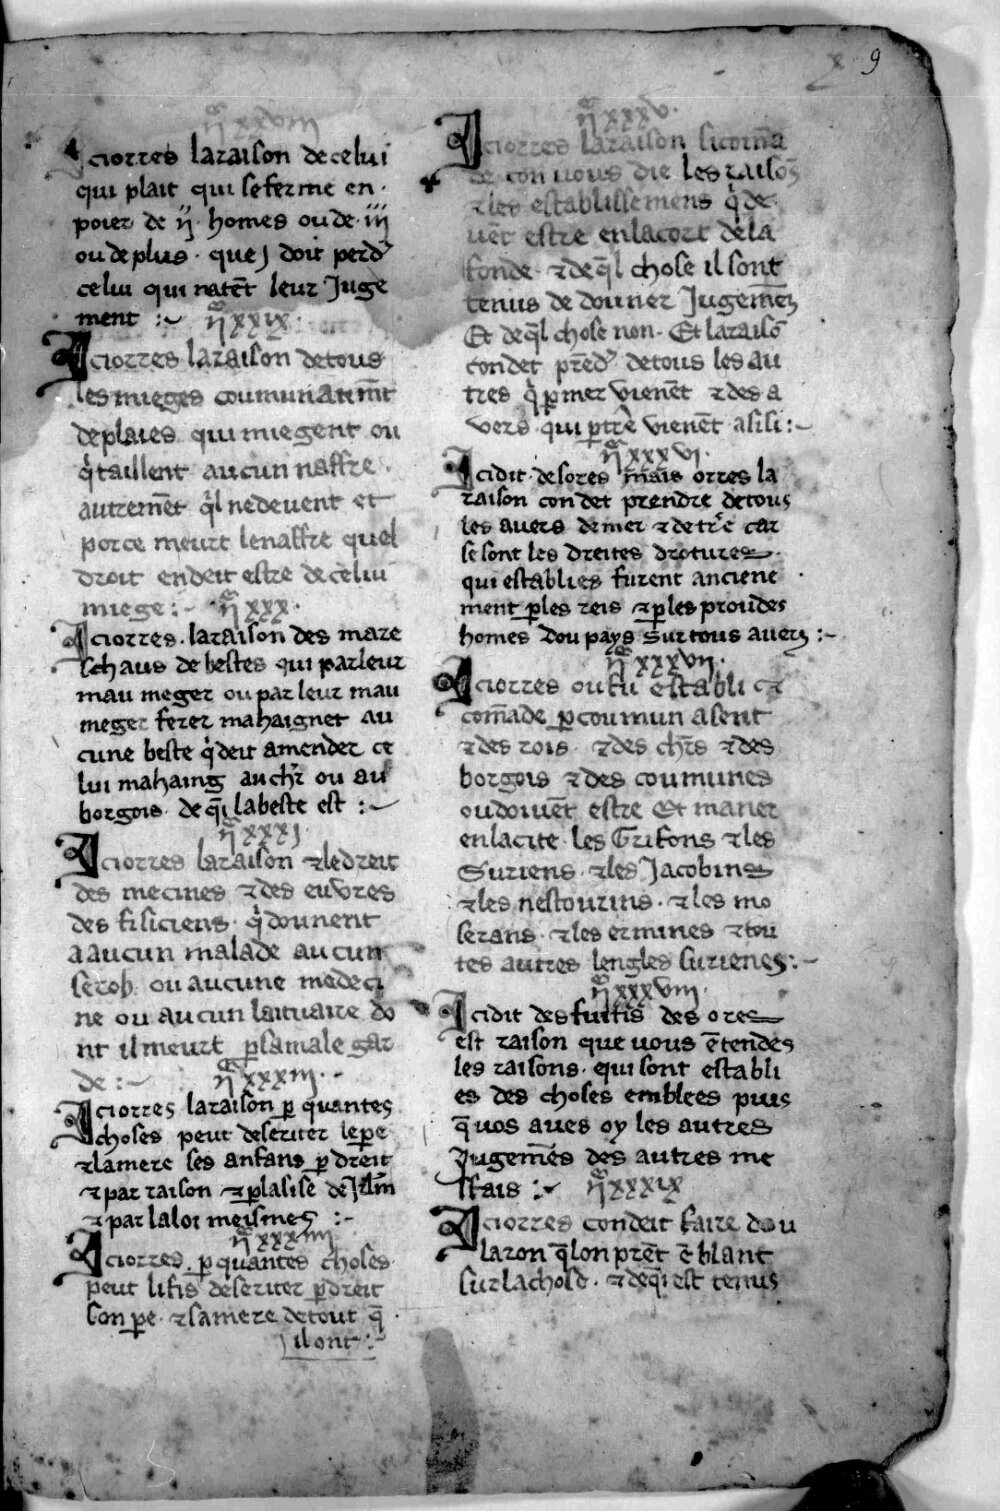 9
ꝗͣ xxviii
Iciorres laraison decelui
qui plait qui seferme en.
poier. de .ii. homes oude .iii.
oudeplus. que j doit perdˀ
celui qui natēt leur Juge
ment :~ ꝗͣ xxix.
Iciorres laraison detous
lesmieges coumunaum̄t
deplaies qui miegent ou
q'taillent aucun naffre.
autremēt q'l nedeuent et
porce meurt lenaffre quel
droit endeit estre decelui
miege :~ ꝗͣ xxx.
Iciorres. laraison des mare
schaus de bestes qui parleur
mau meger ou par leur mau
meger ferer mahaignet au
cune beste q'deit amender ce
lui mahaing auchr̄ ou au
borgois. deq̄i labeste est :~
ꝗͣ xxxj.
Iciorres laraison ⁊ledreit
des mecines ⁊des euvres
des fisiciens. q'dounent
aaucun malade aucun
serob. ou aucune medeci
ne ou aucun laituaire dō
nt ilmeurt ꝑsamale gar
de :~ ꝗͣ xxxiii.
Iciorres laraison ꝑ quantes
choses peut deseriter lepe
⁊lamere ses anfans ꝑ dreit
⁊ par raison ⁊ ꝑlasise de Jrl̄m
⁊ par laloi meismes :~
ꝗͣ xxxiiii.
Iciorres. ꝑquantes choses
peut lifis deseriter ꝑdreit
son ꝑe. ⁊samere detout q̄
ilont :~
ꝗͣ xxxv.
Iciorres laraison sicom̄a
de con uous die les raisōs
⁊les establissemens q'de
uēt estre enlacort dela
fonde. ⁊deq̄l chose il sont
tenus de douner Jugemēs
Et deq̄l chose non. Et laraisō
condet prēdˀ detous les au
tres q'ꝑmer vienēt ⁊des a
vers. qui ꝑtr̄e vienēt asisi :~
ꝗͣ xxxvi.
Icidit. desores m̄ais orres la
raison condet prendre detous
les avers demer ⁊detr̄e car
se sont les dreites drotures.
qui establies furent anciene
ment ꝑles reis ⁊ꝑles proudes
homes dou pays surtous avers :~
ꝗͣ xxxvii.
Iciorres oufu establi ⁊
com̄ade ꝑcoumun asent
⁊des rois. ⁊des chr̄s ⁊des
borgois ⁊des coumunes
oudoiuēt estre Et maner
enlacite les Grifons ⁊les
Suriens. ⁊les Jacobins
⁊les nestourins. ⁊les mo
serans. ⁊les ermines ⁊tou
tes autres lengles surienes :~
ꝗͣ xxxviii.
Icidit desfuitis des ores
est raison que uous ētendes
les raisons. qui sont establi
es des choses emblees puis
q̄ uos aues oy les autres
Jugemēs des autres me
ffais :~ ꝗͣ xxxix
Iciorres condeit faire dou
laron q̄lon prēt ē blant
surlachose. ⁊deq̄i est tenus